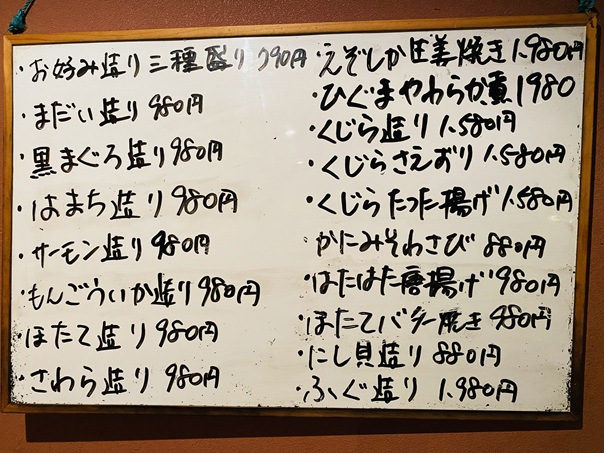 ・お好み造り三種盛り 790円
・まだい造り 980円
・黒まぐろ造り 980円
・はまち造り 980円
・サーモン造り 980円
・もんごういか造り 980円
・ほたて造り 980円
・さわら造り 980円
・えぞしか生姜焼き 1.980円
・ひぐまやわらか煮 1980
・くじら造り 1.580円
・くじらさえずり 1.580円
・くじらたった揚げ 1.580円
かにみそわさび 880円
・はたはた唐揚げ 980円
・ほたてバター焼き 980円
・にし貝造り 880円
・ふぐ造り 1.980円